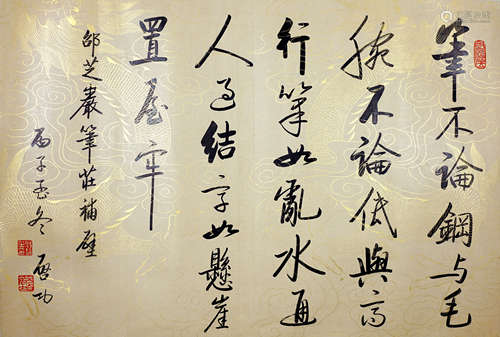 筆不論鋼与毛
腕不論低與高
行筆如亂水通
人過結字如懸崖
置屋牢
邵芝巖筆莊補壁
丙子孟冬 啓功